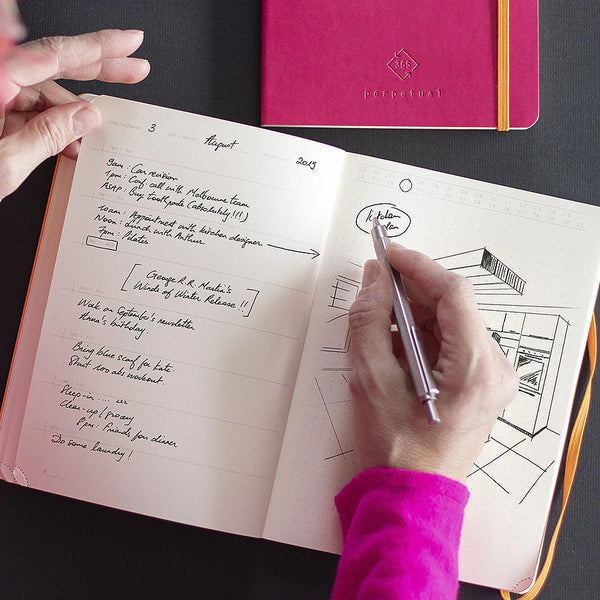 365
perpetual
3
August
2019
9am : Car revision
1pm : Conf call with Melbourne team
ASAP : Buy toothpaste (absolutely !!!)
10am : Appointment with kitchen designer
Noon : Lunch with Arthur
7pm : Pilates
George R.R. Martin's
Winds of Winter Release !!
Work on September's newsletter
Anna's birthday
Bring blue scarf for Kate
Start 100 abs workout.
Sleep-in ....
Clean-up / grocery
8pm : Friends for dinner
Do some laundry !
Kitchen